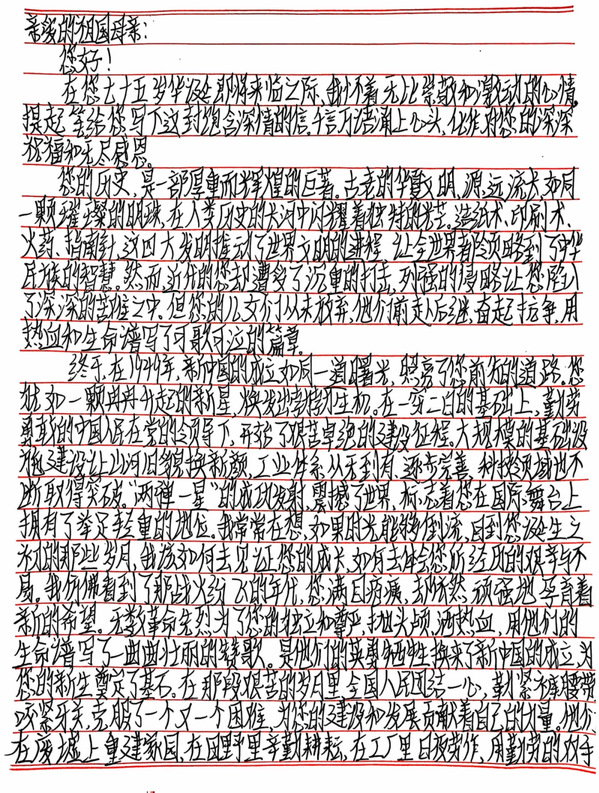 亲爱的祖国母亲:
您好!
在您七十五岁华诞即将来临之际,我怀着无比崇敬和激动的心情,
提起笔给您写下这封饱含深情的信。千言万语涌上心头,化作对您的深深
祝福和无尽感恩。
您的历史,是一部厚重而辉煌的巨著。古老的华夏文明,源远流长,如同
一颗璀璨的明珠,在人类历史的长河中闪耀着独特的光芒。造纸术、印刷术、
火药、指南针,这四大发明推动了世界文明的进程,让全世界都领略到了中华
民族的智慧。然而,近代的您却遭受了沉重的打击,列强的侵略让您陷入
了深深的苦难之中。但您的儿女们从未放弃,他们前赴后继,奋起抗争,用
热血和生命谱写了可歌可泣的篇章。
终于,在1949年,新中国的成立如同一道曙光,照亮了您前行的道路。您
犹如一颗冉冉升起的新星,焕发出勃勃生机。在一穷二白的基础上,勤劳
勇敢的中国人民在党的领导下,开始了艰苦卓绝的建设征程。大规模的基础设
施建设让山河旧貌换新颜,工业体系从无到有,逐步完善,科技领域也不
断取得突破。"两弹一星"的成功发射,震撼了世界,标志着您在国际舞台上
拥有了举足轻重的地位。我常常在想,如果时光能够倒流,回到您诞生之
初的那些岁月,我该如何去见证您的成长,如何去体会您所经历的艰辛与不
易。我仿佛看到了那战火纷飞的年代,您满目疮痍,却依然顽强地孕育着
新的希望。无数革命先烈为了您的独立和尊严,抛头颅,洒热血,用他们的
生命谱写了一曲曲壮丽的赞歌。是他们的英勇牺牲换来了新中国的成立,为
您的新生奠定了基石。在那段艰苦的岁月里,全国人民团结一心,勒紧裤腰带,
咬紧牙关,克服了一个又一个困难,为您的建设和发展贡献着自己的力量。他们
在废墟上重建家园,在田野里辛勤耕耘,在工厂里日夜劳作,用勤劳的双手